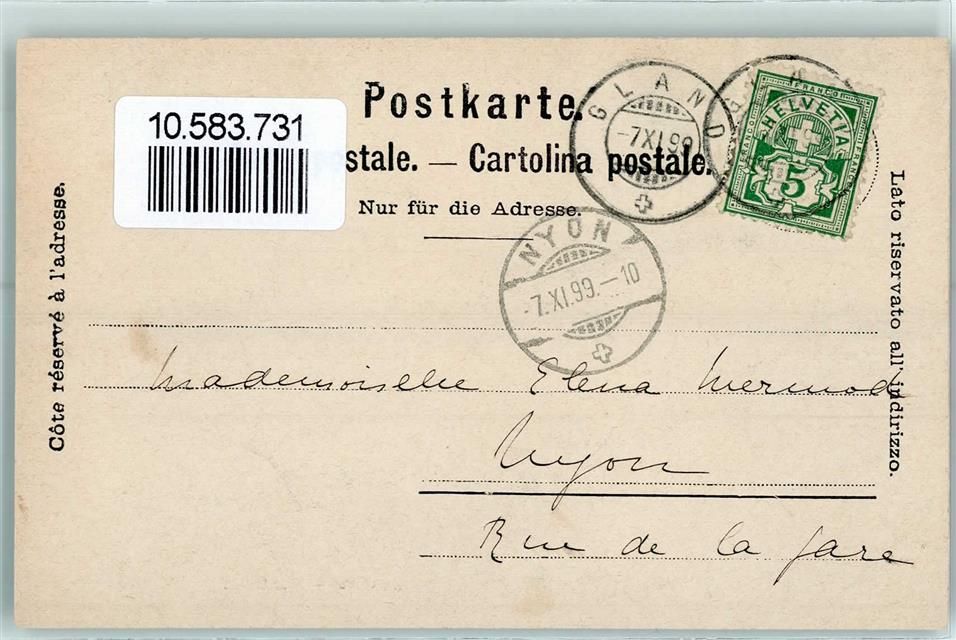 Postkarte.
10.583.731
stale. — Cartolina postale.
Nur für die Adresse.
Côte réservé à l'adresse.
Lato riservato all' indirizzo.
GLAND
-7.XI.99
FRANCO
HELVETIA
FRANCO
5
NYON
-7.XI.99.-10
Mademoiselle Elena Mermod
Nyon
Rue de la gare